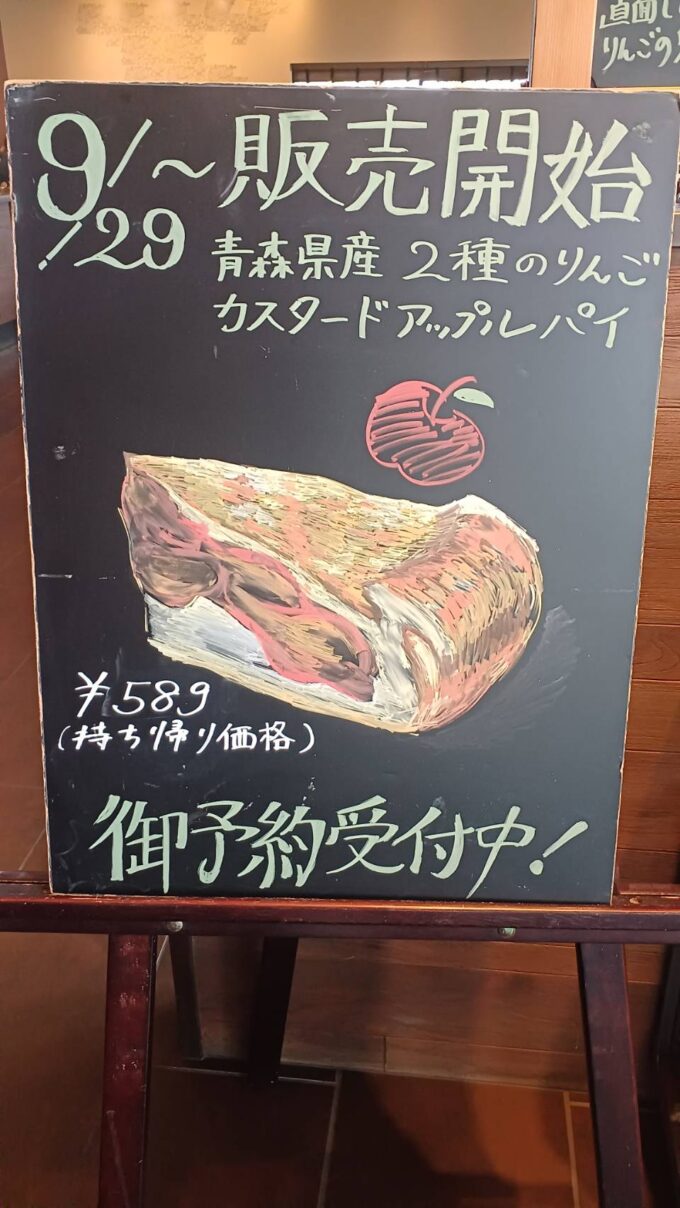 9/29～販売開始
青森県産 2種のりんご
カスタードアップルパイ
¥589
(持ち帰り価格)
御予約受付中!
直面し
りんごの